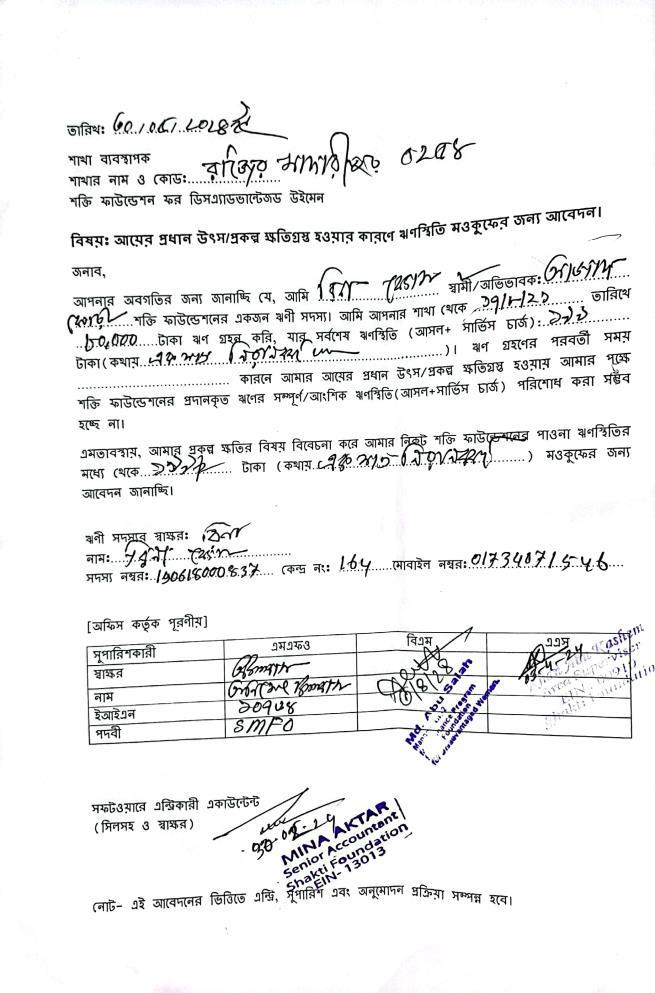 তারিখ:
শাখা ব্যবস্থাপক
শাখার নাম ও কোড: রাজৈর মাদারীপুর ০২৫৪
শক্তি ফাউন্ডেশন ফর ডিসএ্যাডভান্টেজড উইমেন
বিষয়: আয়ের প্রধান উৎস/প্রকল্প ক্ষতিগ্রস্থ হওয়ার কারণে ঋণস্থিতি মওকুফের জন্য আবেদন।
জনাব,
আপনার অবগতির জন্য জানাচ্ছি যে, আমি রিনা বেগম স্বামী/অভিভাবক:
শক্তি ফাউন্ডেশনের একজন ঋণী সদস্য। আমি আপনার শাখা থেকে তারিখে
টাকা ঋণ গ্রহন করি, যার সর্বশেষ ঋণস্থিতি (আসল+ সার্ভিস চার্জ):
টাকা(কথায় একশত )। ঋণ গ্রহণের পরবর্তী সময়
কারনে আমার আয়ের প্রধান উৎস/প্রকল্প ক্ষতিগ্রস্থ হওয়ায় আমার পক্ষে
শক্তি ফাউন্ডেশনের প্রদানকৃত ঋণের সম্পূর্ণ/আংশিক ঋণস্থিতি(আসল+সার্ভিস চার্জ) পরিশোধ করা সম্ভব
হচ্ছে না।
এমতাবস্থায়, আমার প্রকল্প ক্ষতির বিষয় বিবেচনা করে আমার নিকট শক্তি ফাউন্ডেশনের পাওনা ঋণস্থিতির
মধ্যে থেকে টাকা (কথায় একশত ) মওকুফের জন্য
আবেদন জানাচ্ছি।
ঋণী সদস্যর স্বাক্ষর: রিনা
নাম: রিনা বেগম
সদস্য নম্বর: 190618000837 কেন্দ্র নং: 164 মোবাইল নম্বর: 01734071546
[অফিস কর্তৃক পূরণীয়]
সুপারিশকারী এমএফও বিএম এএস
স্বাক্ষর
নাম
ইআইএন
পদবী SMFO
Md. Abu Salah
Foundation
for Disadvantaged Women
Kashem
Area Supervisor
Shakti Foundation
সফটওয়ারে এন্ট্রিকারী একাউন্টেন্ট
(সিলসহ ও স্বাক্ষর)
MINA AKTAR
Senior Accountant
Shakti Foundation
EIN- 13013
নোট- এই আবেদনের ভিত্তিতে এন্ট্রি, সুপারিশ এবং অনুমোদন প্রক্রিয়া সম্পন্ন হবে।